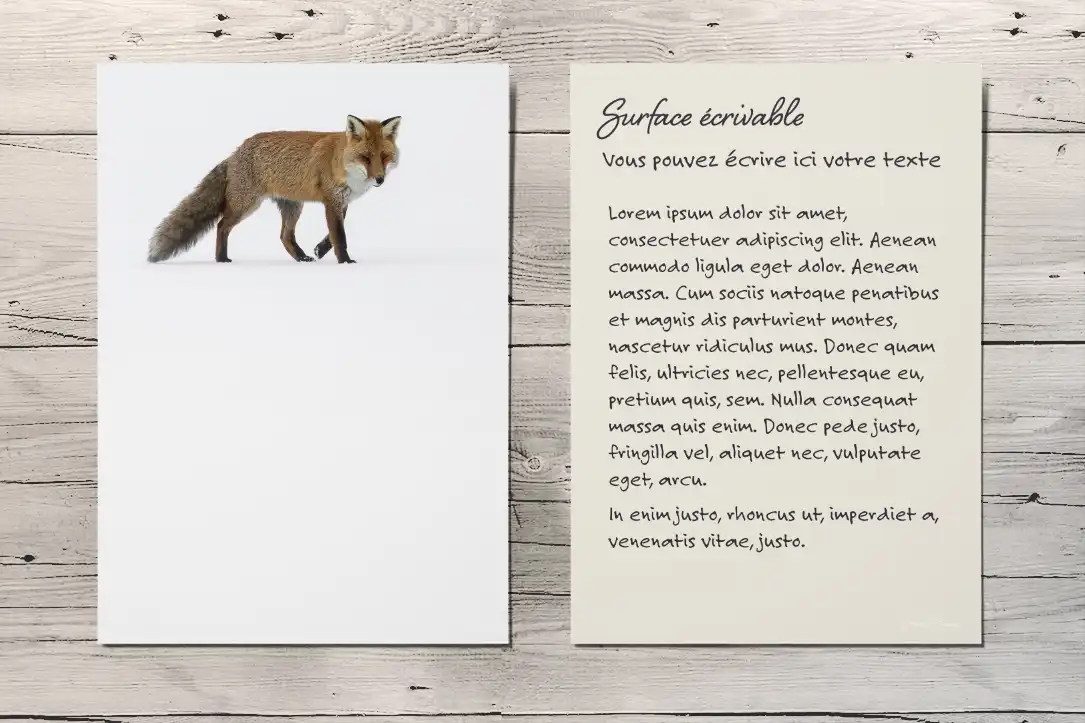 Surface écrivable
Vous pouvez écrire ici votre texte
Lorem ipsum dolor sit amet,
consectetuer adipiscing elit. Aenean
commodo ligula eget dolor. Aenean
massa. Cum sociis natoque penatibus
et magnis dis parturient montes,
nascetur ridiculus mus. Donec quam
felis, ultricies nec, pellentesque eu,
pretium quis, sem. Nulla consequat
massa quis enim. Donec pede justo,
fringilla vel, aliquet nec, vulputate
eget, arcu.
In enim justo, rhoncus ut, imperdiet a,
venenatis vitae, justo.